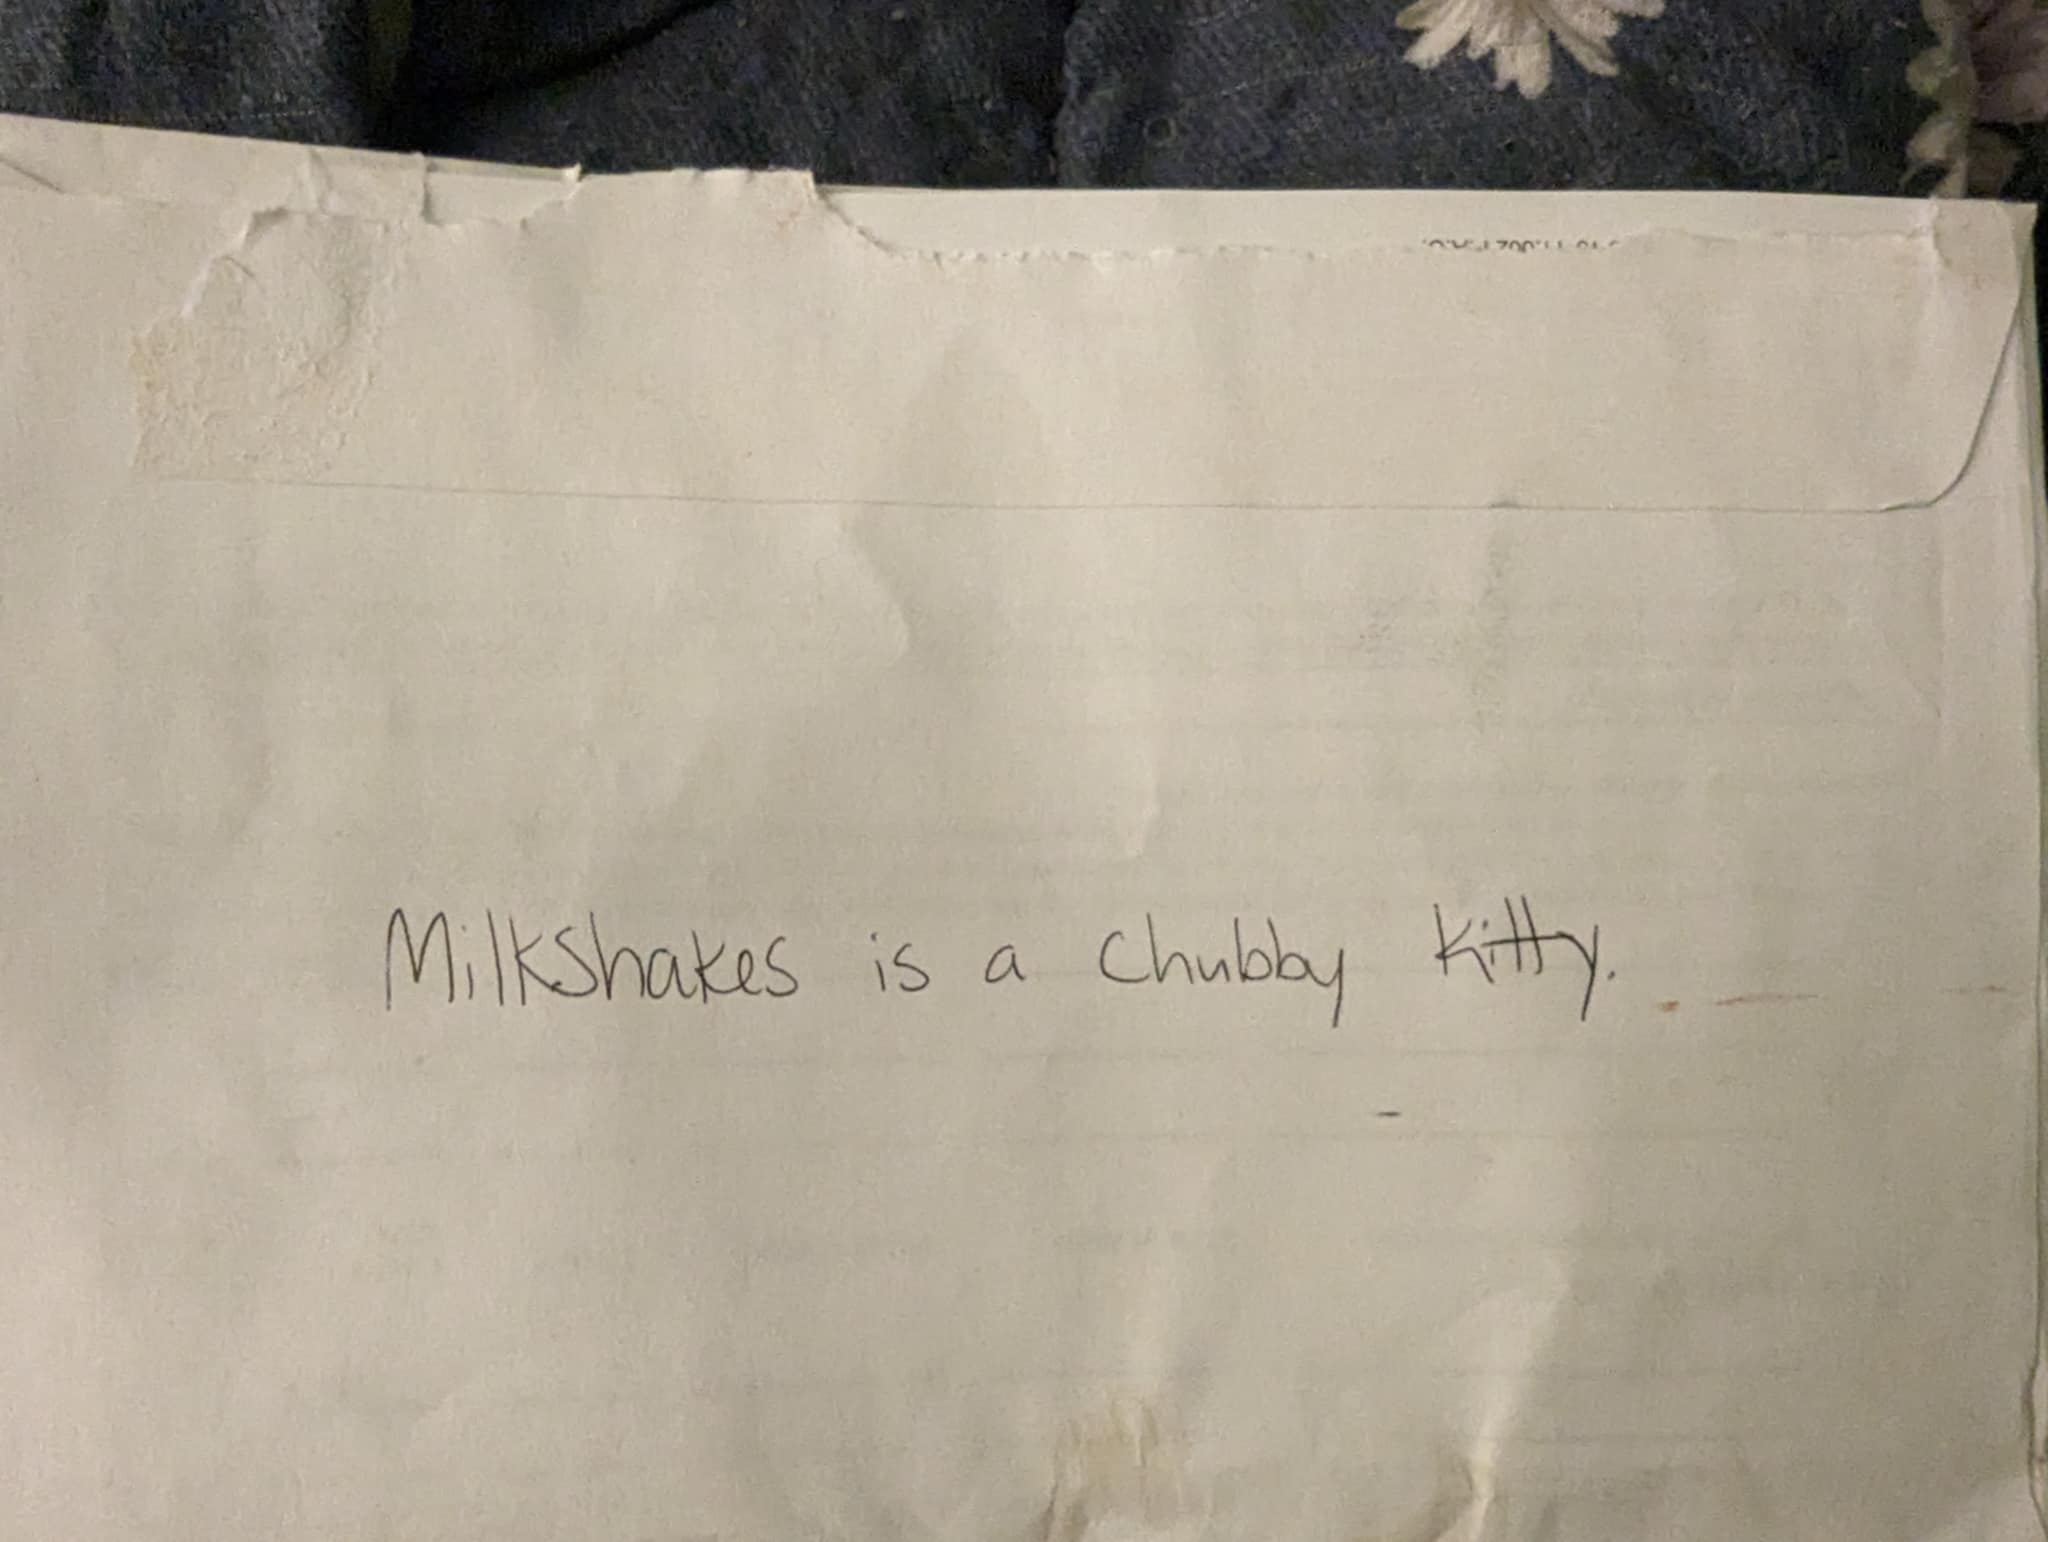 Milkshakes is a chubby kitty.